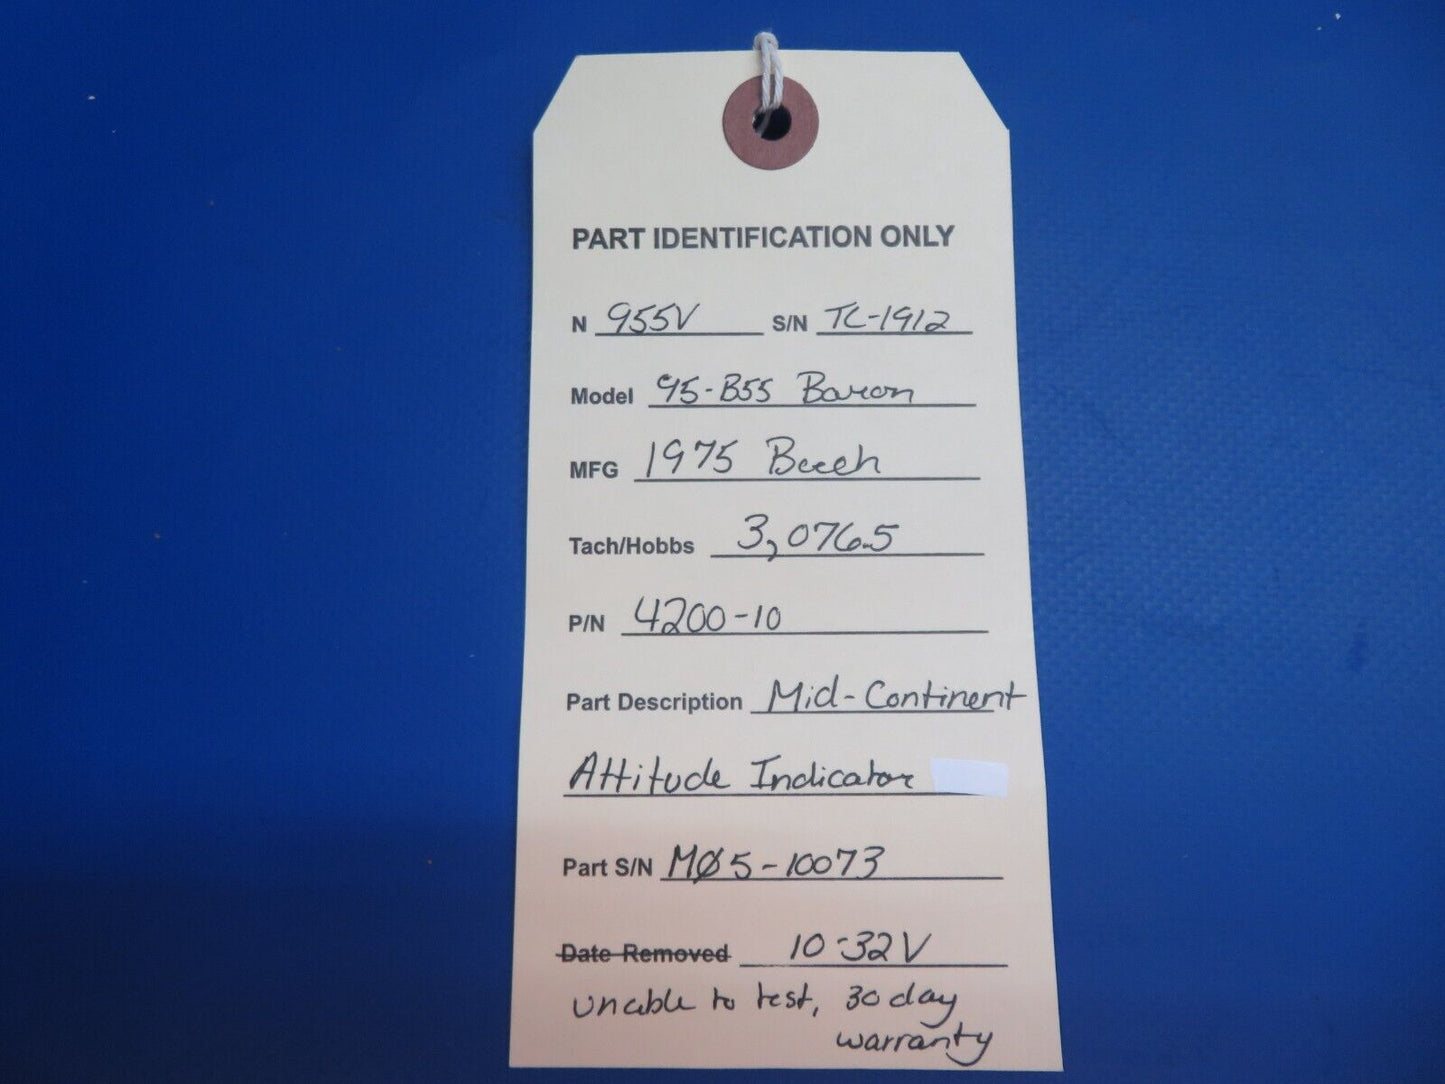 PART IDENTIFICATION ONLY
N 955V S/N TC-1912
Model 95-B55 Baron
MFG 1975 Beech
Tach/Hobbs 3,076.5
P/N 4200-10
Part Description Mid-Continent
Attitude Indicator
Part S/N MØ5-10073
Date Removed 10-32V
unable to test, 30 day
warranty